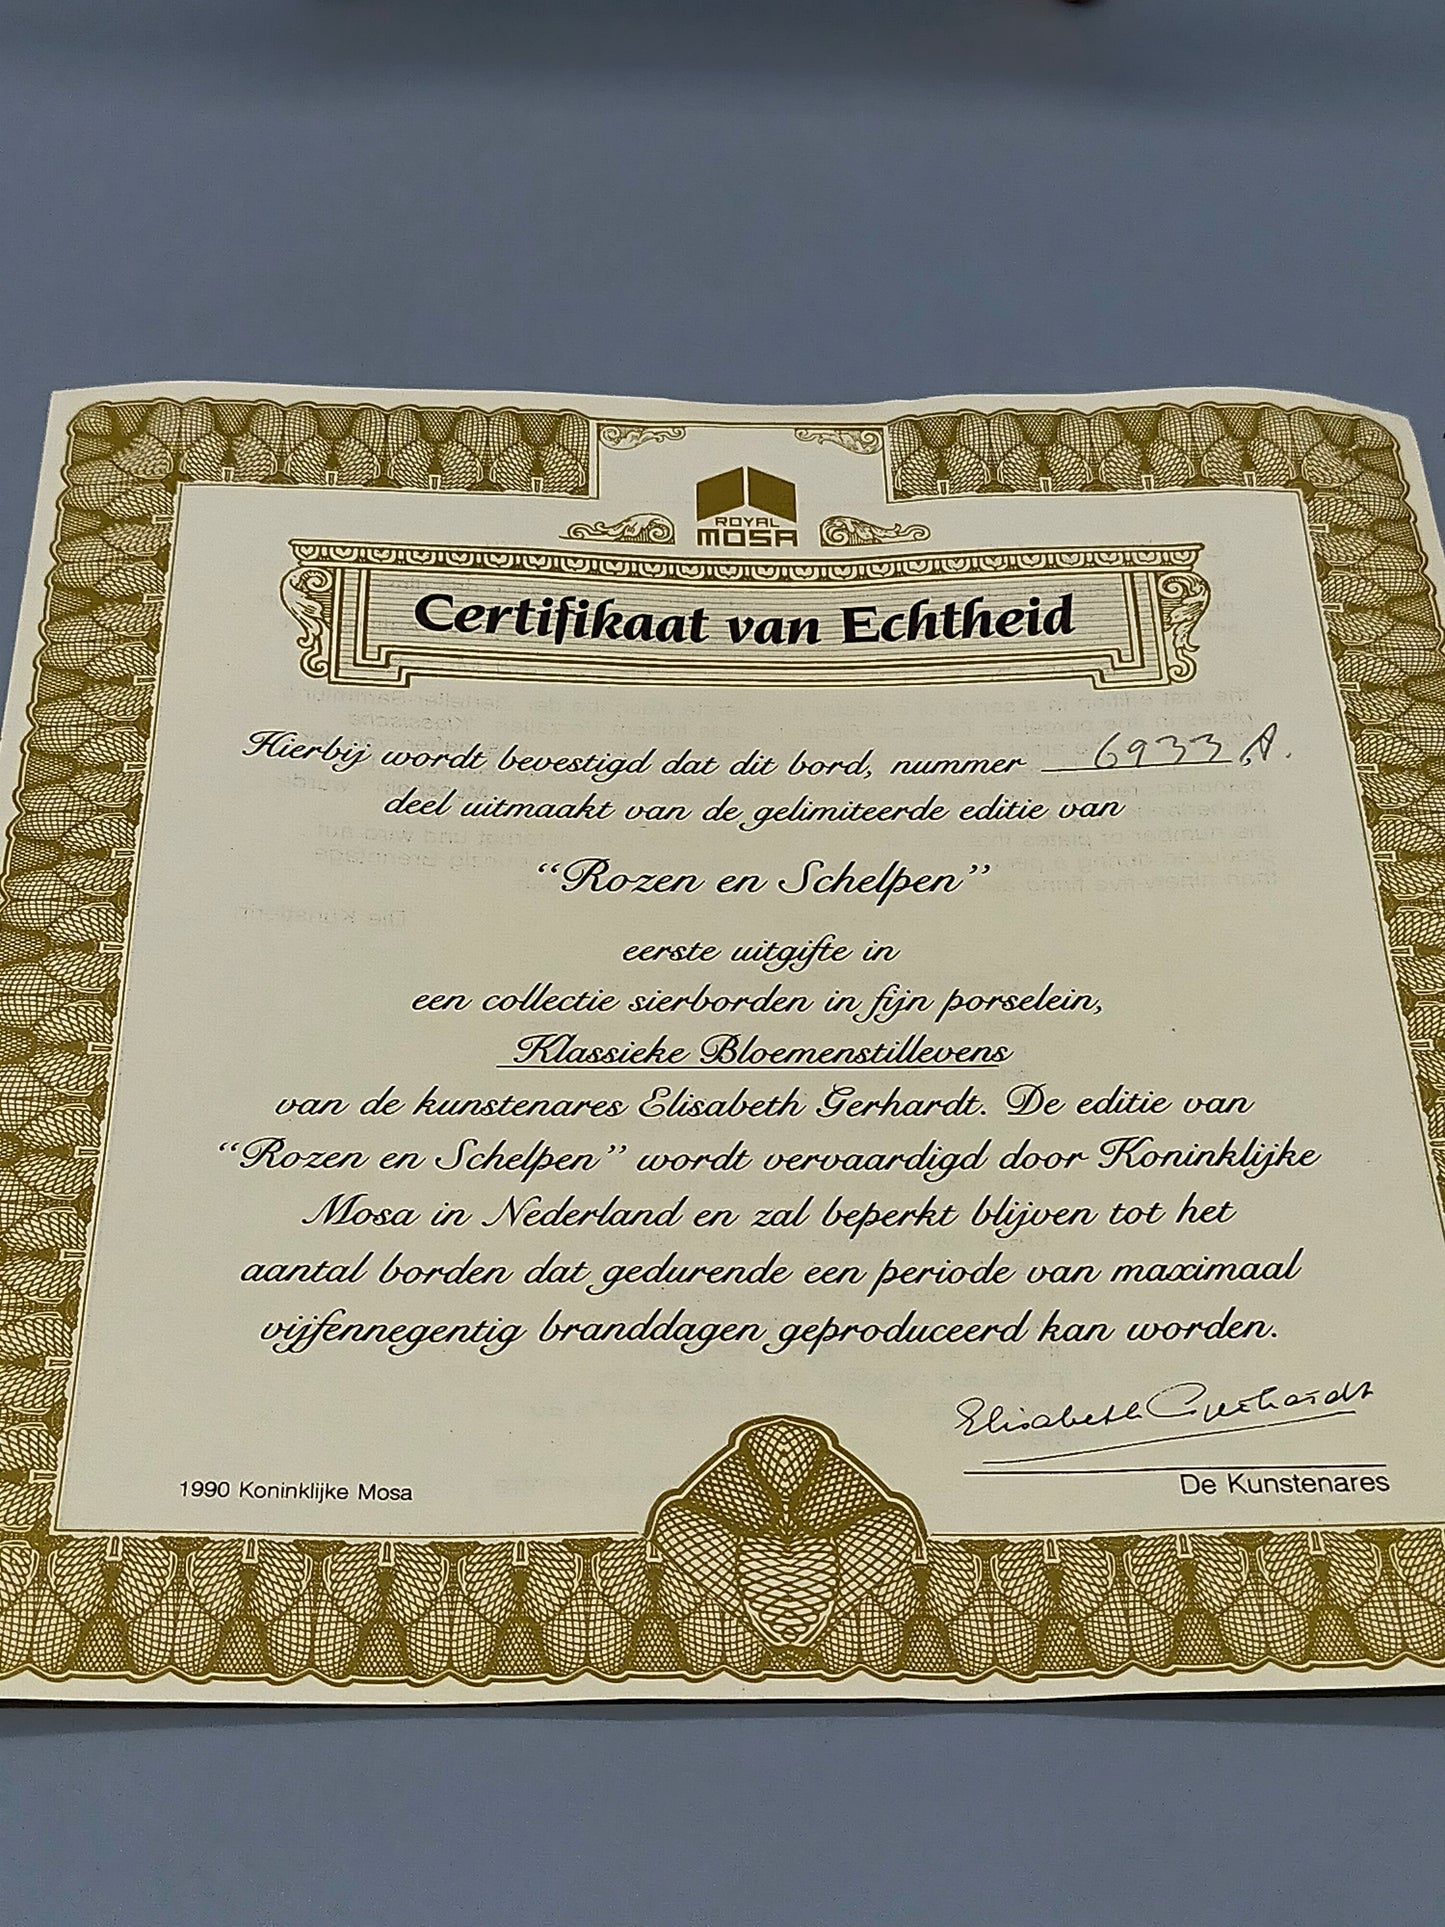 ROYAL
MOSA
Certifikaat van Echtheid
Hierbij wordt bevestigd dat dit bord, nummer 6933 A.
deel uitmaakt van de gelimiteerde editie van
“Rozen en Schelpen”
eerste uitgifte in
een collectie sierborden in fijn porselein,
Klassieke Bloemenstillevens
van de kunstenares Elisabeth Gerhardt. De editie van
“Rozen en Schelpen” wordt vervaardigd door Koninklijke
Mosa in Nederland en zal beperkt blijven tot het
aantal borden dat gedurende een periode van maximaal
vijfennegentig branddagen geproduceerd kan worden.
Elisabeth Gerhardt
De Kunstenares
1990 Koninklijke Mosa